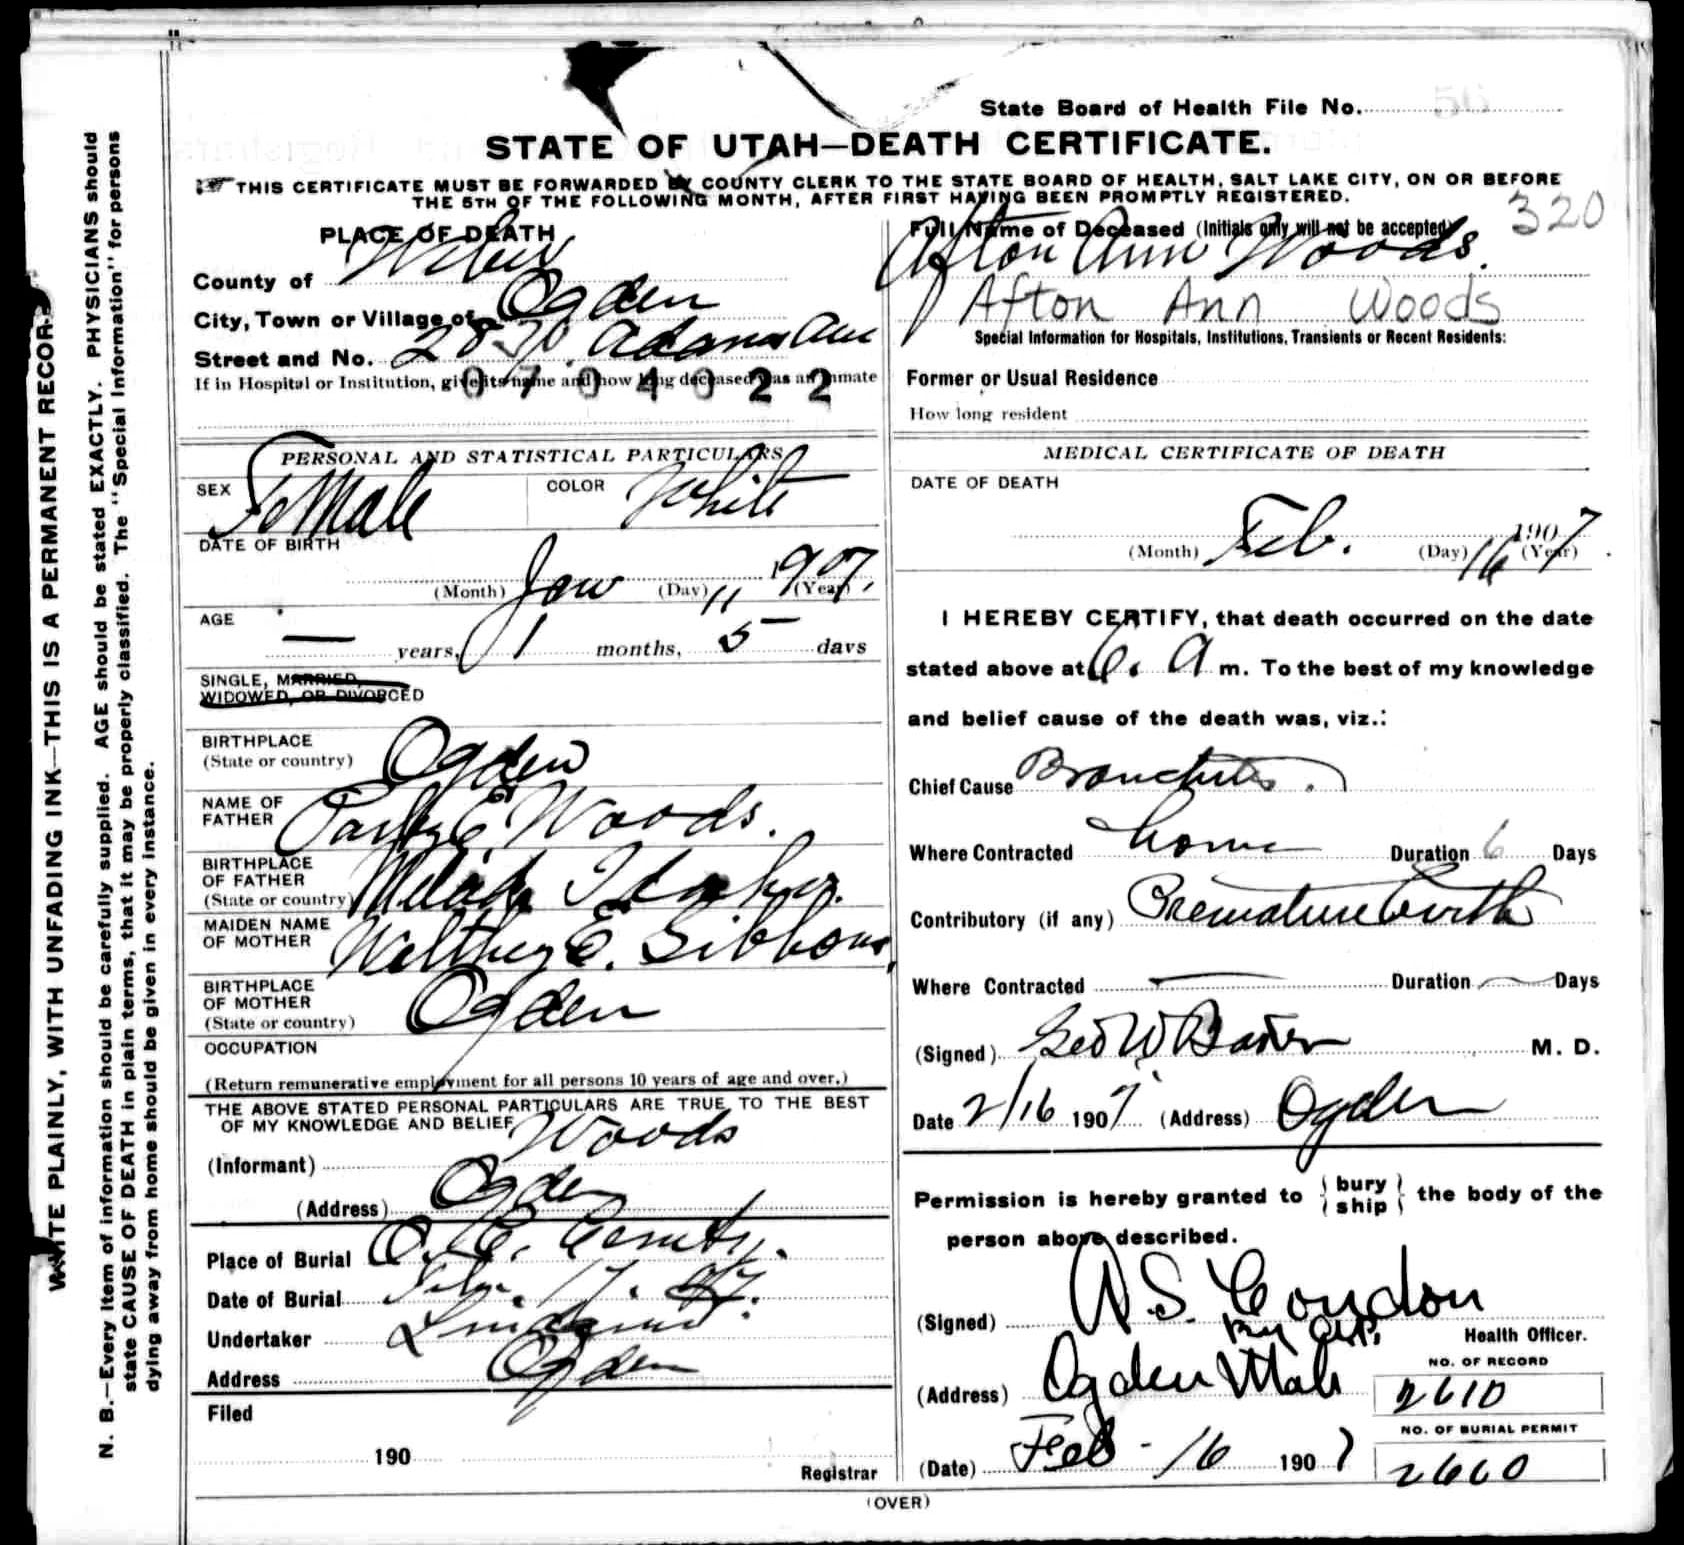 State Board of Health File No.
STATE OF UTAH—DEATH CERTIFICATE.
THIS CERTIFICATE MUST BE FORWARDED BY COUNTY CLERK TO THE STATE BOARD OF HEALTH, SALT LAKE CITY, ON OR BEFORE
THE 5TH OF THE FOLLOWING MONTH, AFTER FIRST HAVING BEEN PROMPTLY REGISTERED.
320
PLACE OF DEATH
County of Weber
City, Town or Village of Ogden
Street and No. Adams Ave
If in Hospital or Institution, give its name and how long deceased was an inmate
0704022
Full Name of Deceased (Initials only will not be accepted)
Afton Ann Woods.
Afton Ann Woods
Special Information for Hospitals, Institutions, Transients or Recent Residents:
Former or Usual Residence
How long resident
PERSONAL AND STATISTICAL PARTICULARS
SEX Female COLOR White
DATE OF BIRTH
(Month) Jan (Day) 11 1907. (Year)
AGE
— years, 1 months, 5 days
SINGLE, MARRIED,
WIDOWED, OR DIVORCED
BIRTHPLACE
(State or country) Ogden
NAME OF
FATHER E. Woods.
BIRTHPLACE
OF FATHER
(State or country) Idaho.
MAIDEN NAME
OF MOTHER E. Gibbons,
BIRTHPLACE
OF MOTHER
(State or country) Ogden
OCCUPATION
(Return remunerative employment for all persons 10 years of age and over.)
THE ABOVE STATED PERSONAL PARTICULARS ARE TRUE TO THE BEST
OF MY KNOWLEDGE AND BELIEF
(Informant) Woods
(Address) Ogden
Place of Burial O. C. Cemty.
Date of Burial Feb. 17. 07.
Undertaker
Address Ogden
Filed
190
Registrar
MEDICAL CERTIFICATE OF DEATH
DATE OF DEATH
(Month) Feb. (Day) 16 1907 (Year)
I HEREBY CERTIFY, that death occurred on the date
stated above at 6. A m. To the best of my knowledge
and belief cause of the death was, viz.:
Chief Cause Bronchitis.
Where Contracted home Duration 6 Days
Contributory (if any) Premature birth
Where Contracted — Duration — Days
(Signed) Geo W Baker M. D.
Date 2/16 1907. (Address) Ogden
Permission is hereby granted to { bury ship } the body of the
person above described.
(Signed) A. S. Condon
By
Health Officer.
(Address) Ogden Utah
(Date) Feb - 16 1907
NO. OF RECORD
2610
NO. OF BURIAL PERMIT
2660
(OVER)
WRITE PLAINLY, WITH UNFADING INK—THIS IS A PERMANENT RECORD.
N. B.—Every item of information should be carefully supplied. AGE should be stated EXACTLY. PHYSICIANS should
state CAUSE OF DEATH in plain terms, that it may be properly classified. The "Special Information" for persons
dying away from home should be given in every instance.